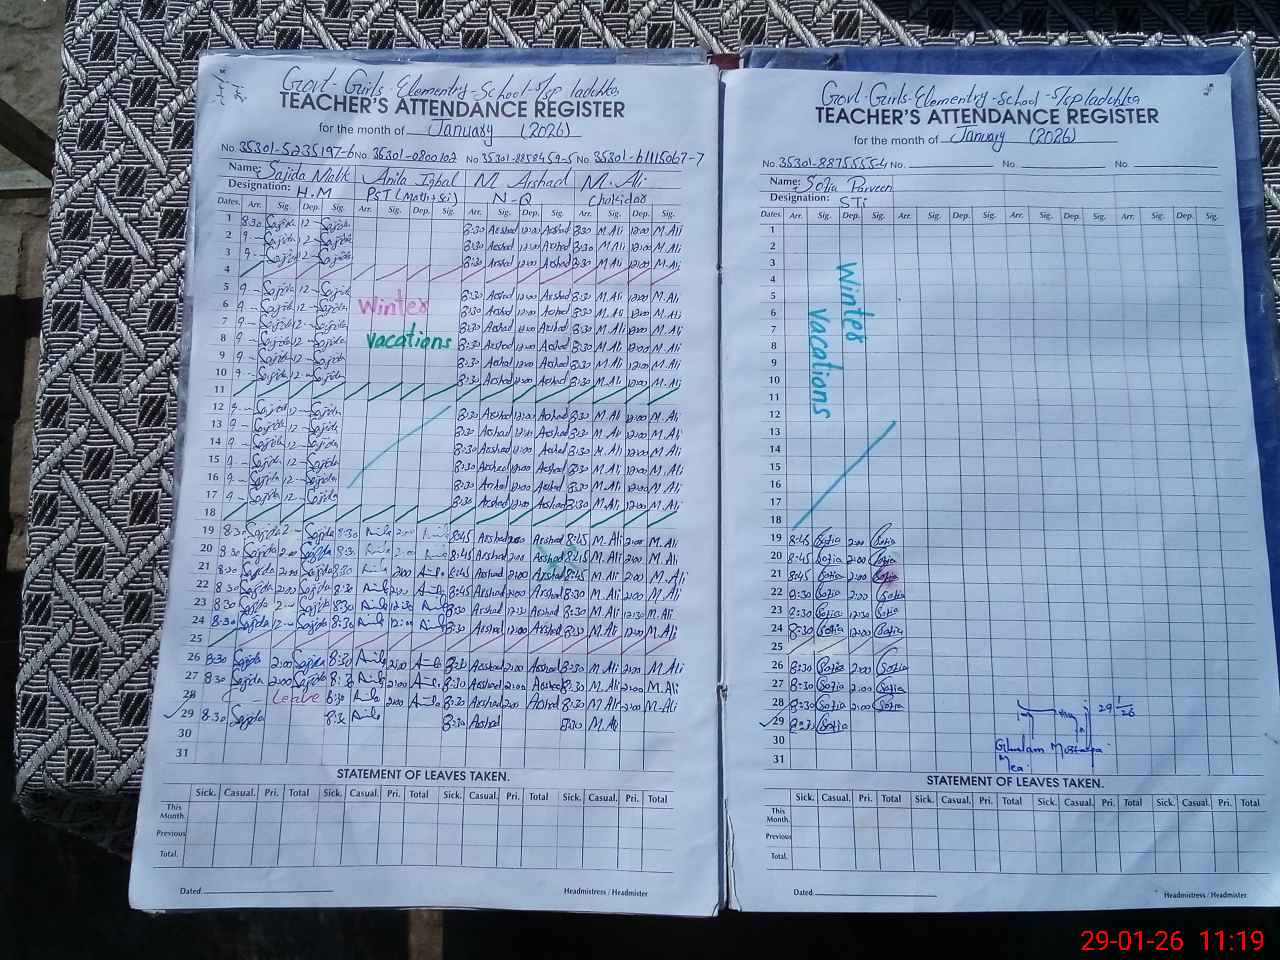 Govt. Girls Elementry School
TEACHER'S ATTENDANCE REGISTER
for the month of January (2026)
No. 35301-5235197-6 No. 35301-0800102 No. 35301-8858459-5 No. 35301-61115067-7
Name: Sajida Malik Anila Iqbal M. Arshad M. Ali
Designation: H.M PST (Math+Sci) N-Q Chokidar
Dates. Arr. Sig. Dep. Sig. Arr. Sig. Dep. Sig. Arr. Sig. Dep. Sig. Arr. Sig. Dep. Sig.
1 8:30 Sajida 12 - Sajida 8:30 Arshad 12:00 Arshad 8:30 M.Ali 12:00 M.Ali
2 9 - Sajida 12 - Sajida 8:30 Arshad 12:00 Arshad 8:30 M.Ali 12:00 M.Ali
3 9 - Sajida 12 - Sajida 8:30 Arshad 12:00 Arshad 8:30 M.Ali 12:00 M.Ali
4
5 9 - Sajida 12 - Sajida 8:30 Arshad 12:00 Arshad 8:30 M.Ali 12:00 M.Ali
6 9 - Sajida 12 - Sajida Winter 8:30 Arshad 12:00 Arshad 8:30 M.Ali 12:00 M.Ali
7 9 - Sajida 12 - Sajida 8:30 Arshad 12:00 Arshad 8:30 M.Ali 12:00 M.Ali
8 9 - Sajida 12 - Sajida vacations 8:30 Arshad 12:00 Arshad 8:30 M.Ali 12:00 M.Ali
9 9 - Sajida 12 - Sajida 8:30 Arshad 12:00 Arshad 8:30 M.Ali 12:00 M.Ali
10 9 - Sajida 12 - Sajida 8:30 Arshad 12:00 Arshad 8:30 M.Ali 12:00 M.Ali
11
12 9 - Sajida 12 - Sajida 8:30 Arshad 12:00 Arshad 8:30 M.Ali 12:00 M.Ali
13 9 - Sajida 12 - Sajida 8:30 Arshad 12:00 Arshad 8:30 M.Ali 12:00 M.Ali
14 9 - Sajida 12 - Sajida 8:30 Arshad 12:00 Arshad 8:30 M.Ali 12:00 M.Ali
15 9 - Sajida 12 - Sajida 8:30 Arshad 12:00 Arshad 8:30 M.Ali 12:00 M.Ali
16 9 - Sajida 12 - Sajida 8:30 Arshad 12:00 Arshad 8:30 M.Ali 12:00 M.Ali
17 9 - Sajida 12 - Sajida 8:30 Arshad 12:00 Arshad 8:30 M.Ali 12:00 M.Ali
18
19 8:30 Sajida 2 - Sajida 8:30 Anila 2:00 Anila 8:45 Arshad 2:00 Arshad 8:45 M.Ali 2:00 M.Ali
20 8:30 Sajida 2:00 Sajida 8:30 Anila 2:00 Anila 8:45 Arshad 2:00 Arshad 8:45 M.Ali 2:00 M.Ali
21 8:30 Sajida 2:00 Sajida 8:30 Anila 2:00 Anila 8:45 Arshad 2:00 Arshad 8:45 M.Ali 2:00 M.Ali
22 8:30 Sajida 2:00 Sajida 8:30 Anila 2:00 Anila 8:45 Arshad 2:00 Arshad 8:30 M.Ali 2:00 M.Ali
23 8:30 Sajida 2 - Sajida 8:30 Anila 12:30 Anila 8:30 Arshad 12:30 Arshad 8:30 M.Ali 12:30 M.Ali
24 8:30 Sajida 12 - Sajida 8:30 Anila 12:00 Anila 8:30 Arshad 12:00 Arshad 8:30 M.Ali 12:00 M.Ali
25
26 8:30 Sajida 2:00 Sajida 8:30 Anila 2:00 Anila 8:30 Arshad 2:00 Arshad 8:30 M.Ali 2:00 M.Ali
27 8:30 Sajida 2:00 Sajida 8:30 Anila 2:00 Anila 8:30 Arshad 2:00 Arshad 8:30 M.Ali 2:00 M.Ali
28 Leave 8:30 Anila 2:00 Anila 8:30 Arshad 2:00 Arshad 8:30 M.Ali 2:00 M.Ali
29 8:30 Sajida 8:30 Anila 8:30 Arshad 8:30 M.Ali
30
31
STATEMENT OF LEAVES TAKEN.
Sick. Casual. Pri. Total Sick. Casual. Pri. Total Sick. Casual. Pri. Total Sick. Casual. Pri. Total
This Month.
Previous
Total.
Dated. Headmistress / Headmister
Govt. Girls Elementry School
TEACHER'S ATTENDANCE REGISTER
for the month of January (2026)
No. 35301-8875555-4 No. No. No.
Name: Sofia Parveen
Designation: STi
Dates. Arr. Sig. Dep. Sig. Arr. Sig. Dep. Sig. Arr. Sig. Dep. Sig. Arr. Sig. Dep. Sig.
1
2
3
4
5
6
7
8
9
10
11
12
13
14
15
16
17
18
Winter vacations
19 8:45 Sofia 2:00 Sofia
20 8:45 Sofia 2:00 Sofia
21 8:45 Sofia 2:00 Sofia
22 8:30 Sofia 2:00 Sofia
23 8:30 Sofia 12:30 Sofia
24 8:30 Sofia 12:00 Sofia
25
26 8:30 Sofia 2:00 Sofia
27 8:30 Sofia 2:00 Sofia
28 8:30 Sofia 2:00 Sofia
29 8:30 Sofia
30
31
29/1/26
Ghulam Mostafa
Mea.
STATEMENT OF LEAVES TAKEN.
Sick. Casual. Pri. Total Sick. Casual. Pri. Total Sick. Casual. Pri. Total Sick. Casual. Pri. Total
This Month.
Previous
Total.
Dated. Headmistress / Headmister
29-01-26 11:19